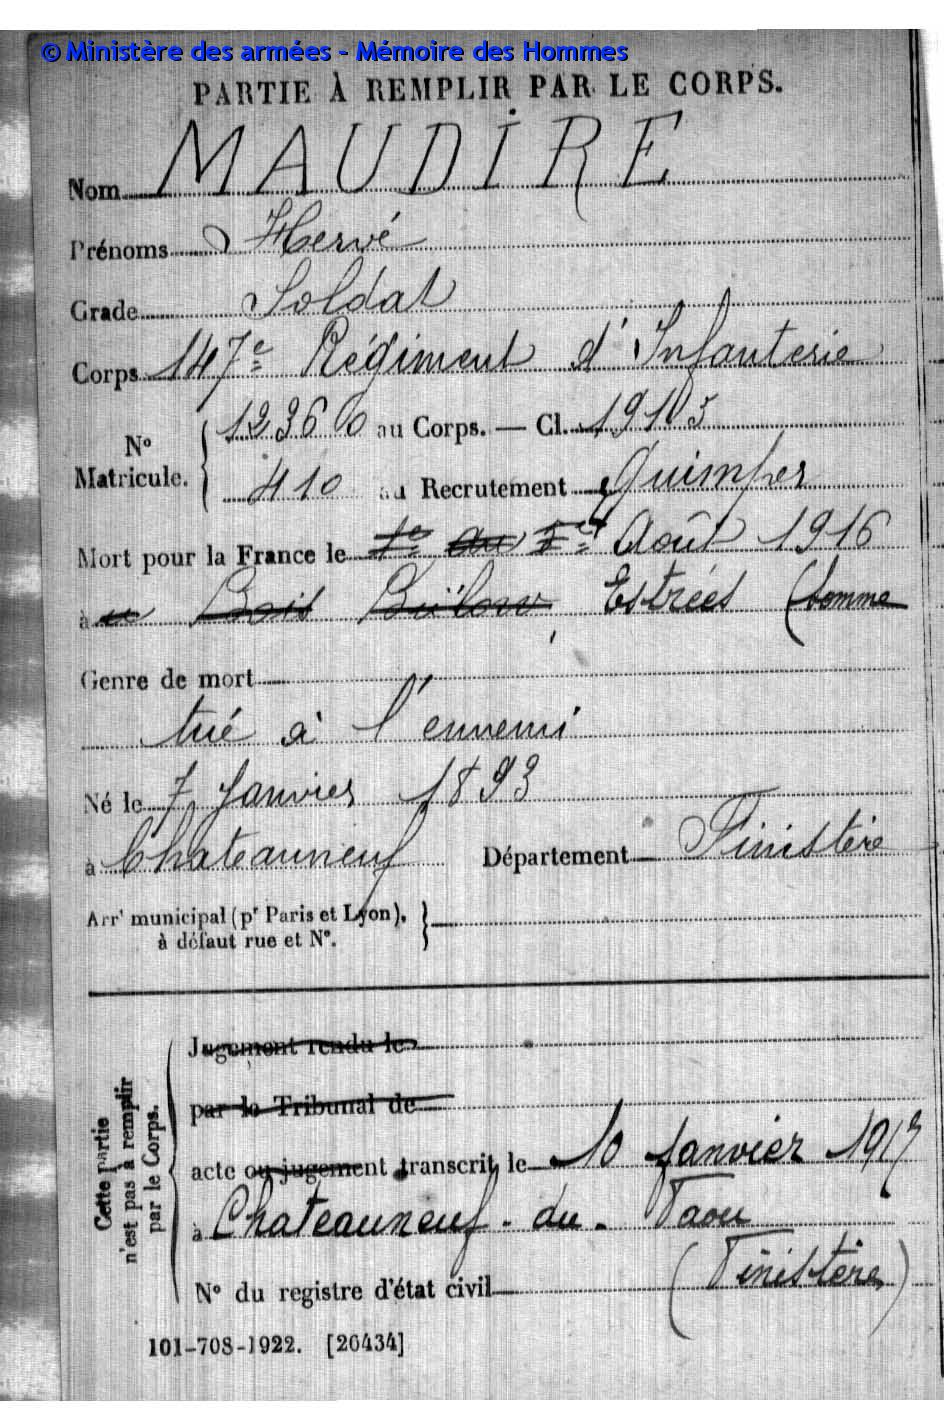 © Ministère des armées - Mémoire des Hommes
PARTIE À REMPLIR PAR LE CORPS.
Nom MAUDIRE
Prénoms Hervé
Grade Soldat
Corps 147e Régiment d'Infanterie
N° Matricule. 12360 au Corps. — Cl. 1913
410 au Recrutement Quimper
Mort pour la France le 1er au 5 et Août 1916
à u Bois Bülow, Estrées (Somme
Genre de mort
tué à l'ennemi
Né le 7 Janvier 1893
à Chateauneuf Département Finistère
Arrt municipal (pr Paris et Lyon),
à défaut rue et N°.
Cette partie n'est pas à remplir par le Corps.
Jugement rendu le
par le Tribunal de
acte ou jugement transcrit le 10 Janvier 1917
à Chateauneuf-du-Faou
N° du registre d'état civil (Finistère)
101-708-1922. [26434]